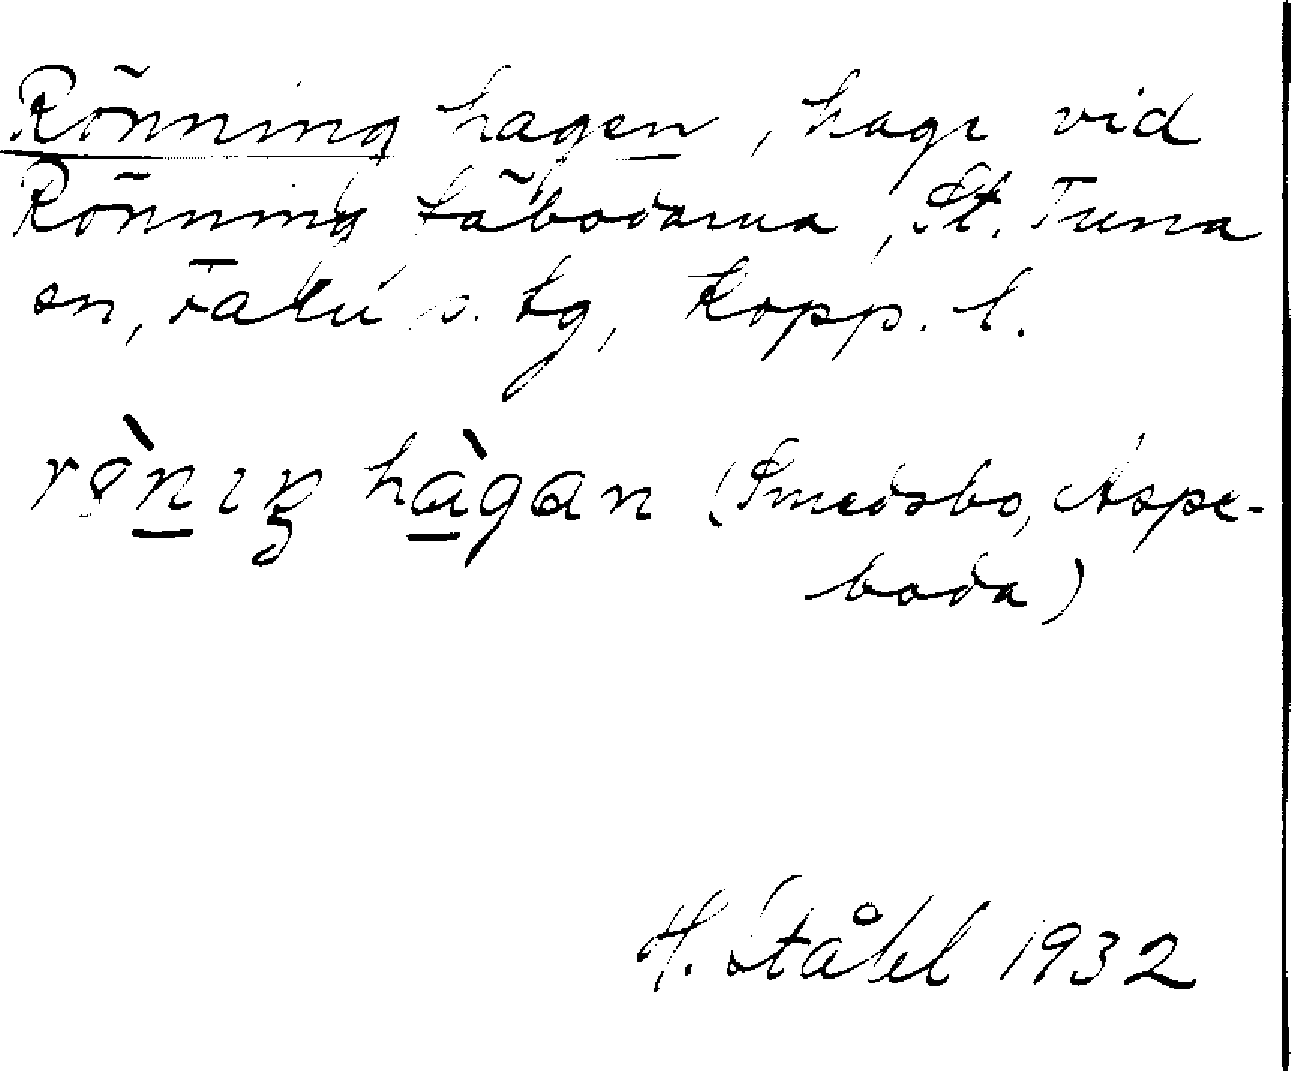 Rönning hagen, hage vid
Rönning fäbodarna, St. Tuna
sn, Falu s. tg, Kopp. l.
rø̀nıŋ hàgan (Smedsbo, Aspe-
boda)
H. Ståhl 1932